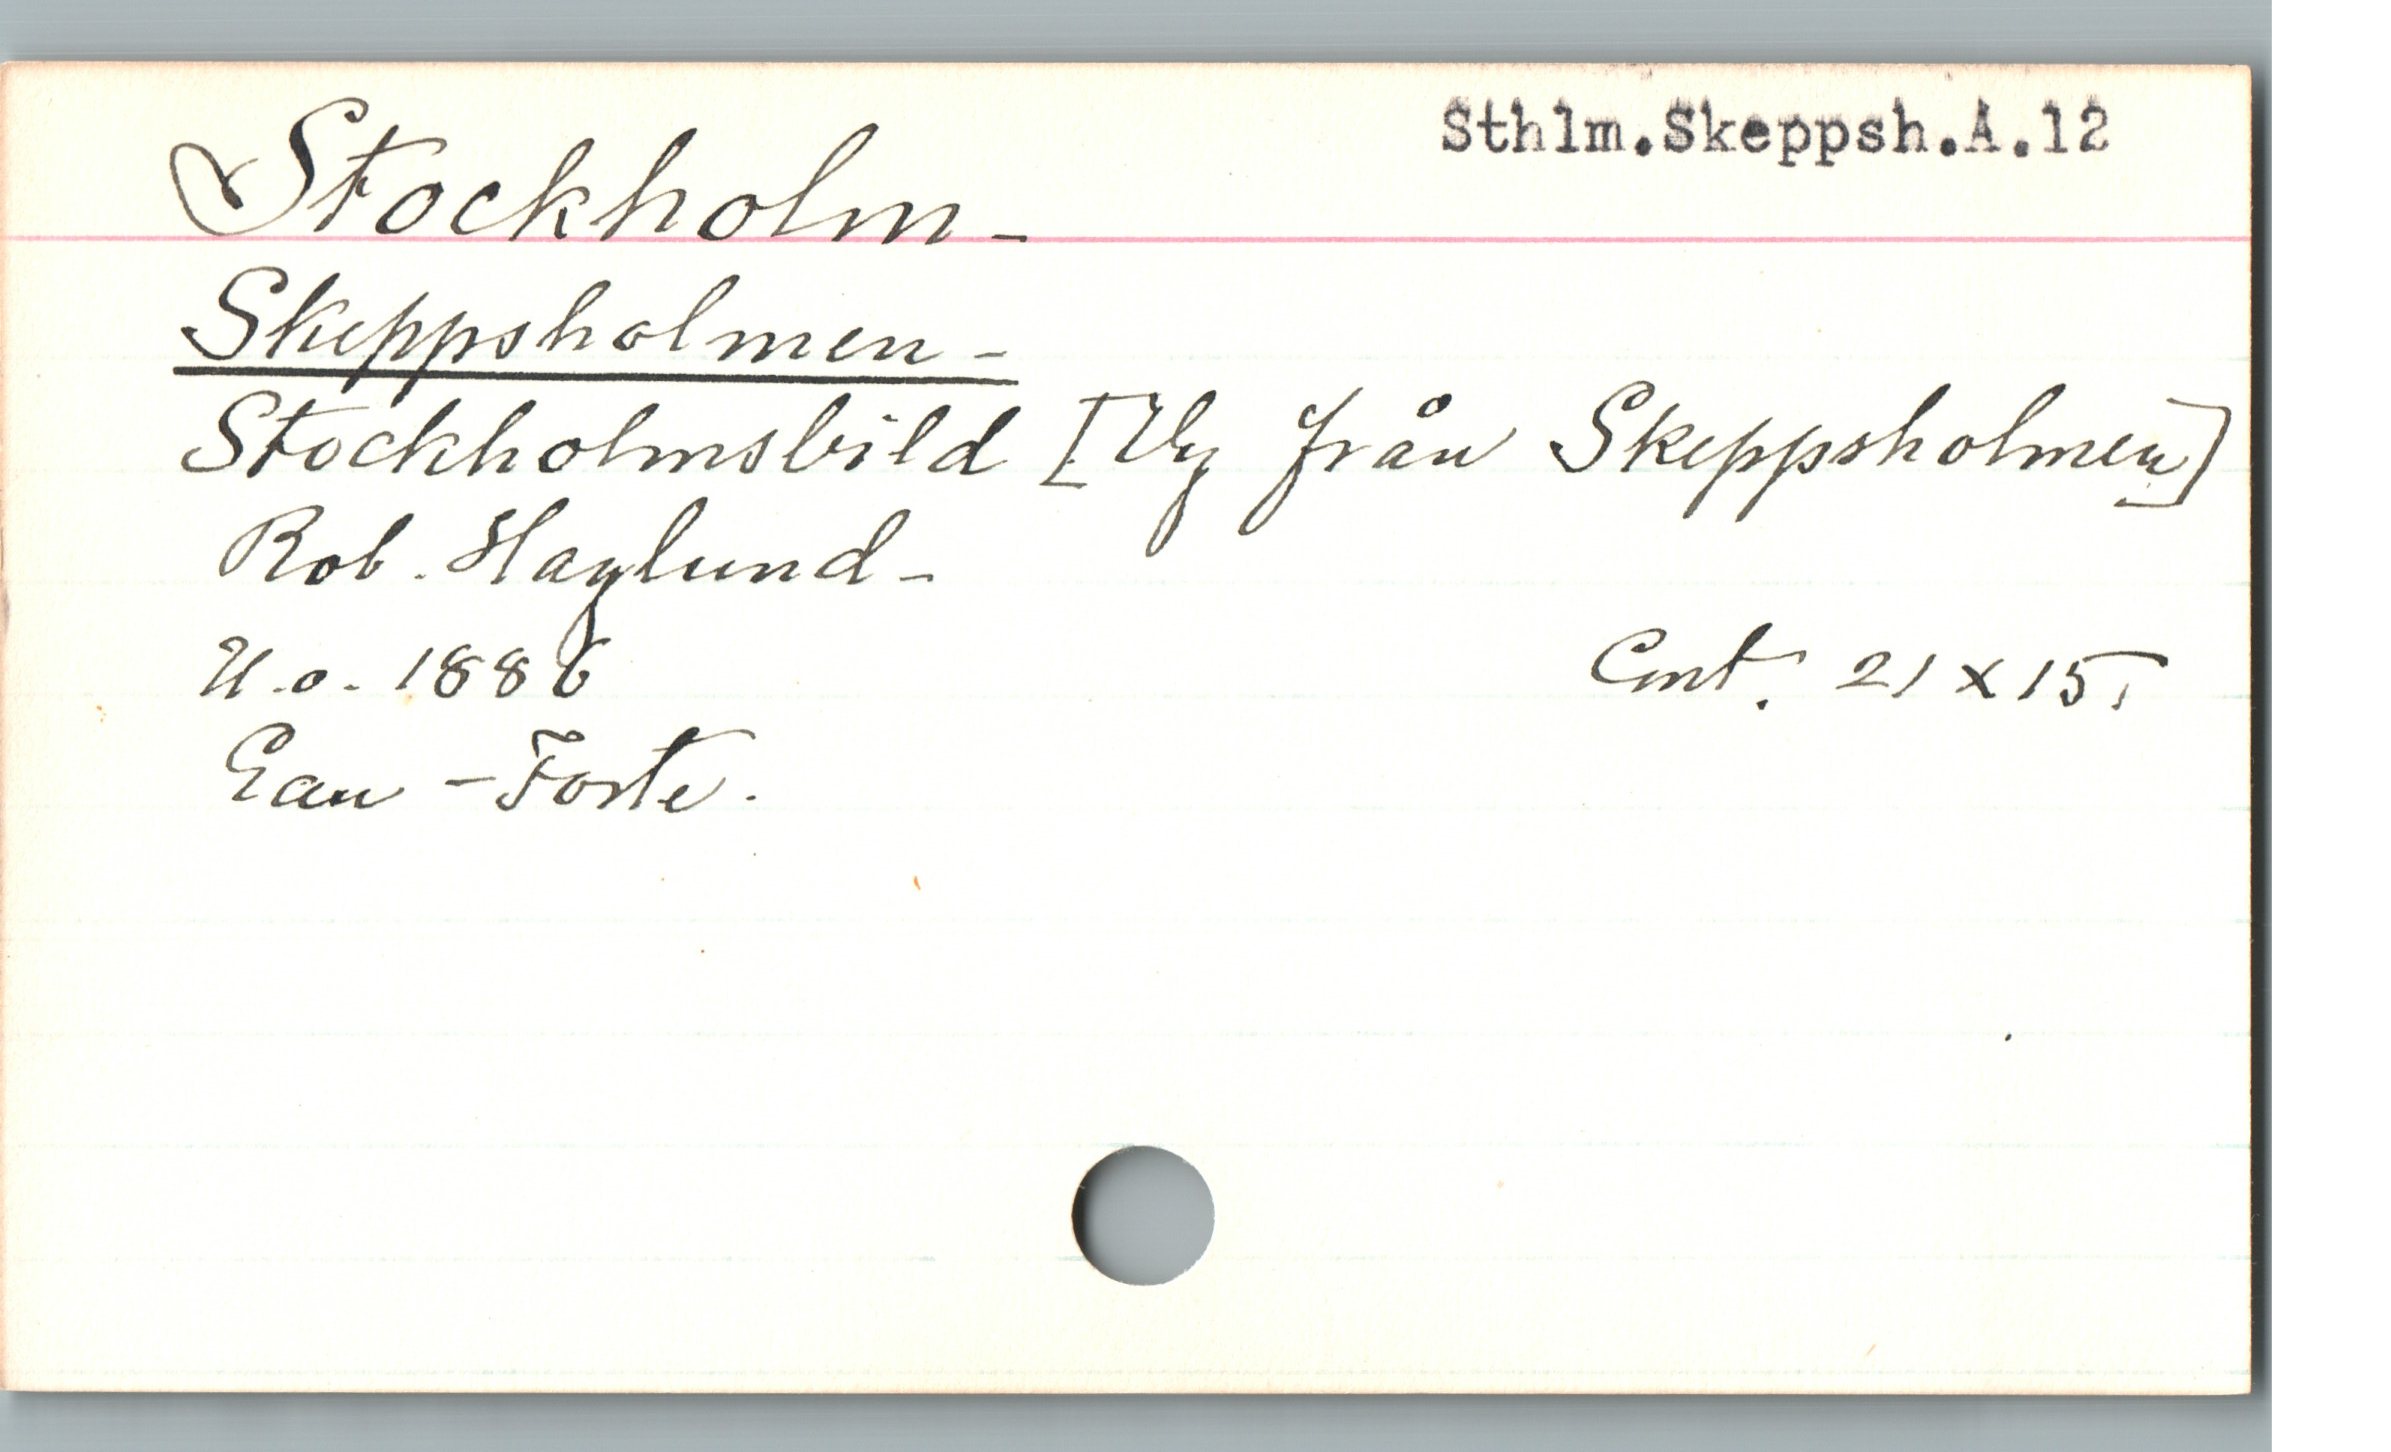 Sthlm.Skeppsh.A.12
Stockholm -
Skeppsholmen -
Stockholmsbild [Vy från Skeppsholmen]
Rob. Haglund -
U.o. 1886
Cmt. 21 x 15.
Eau - Forte.